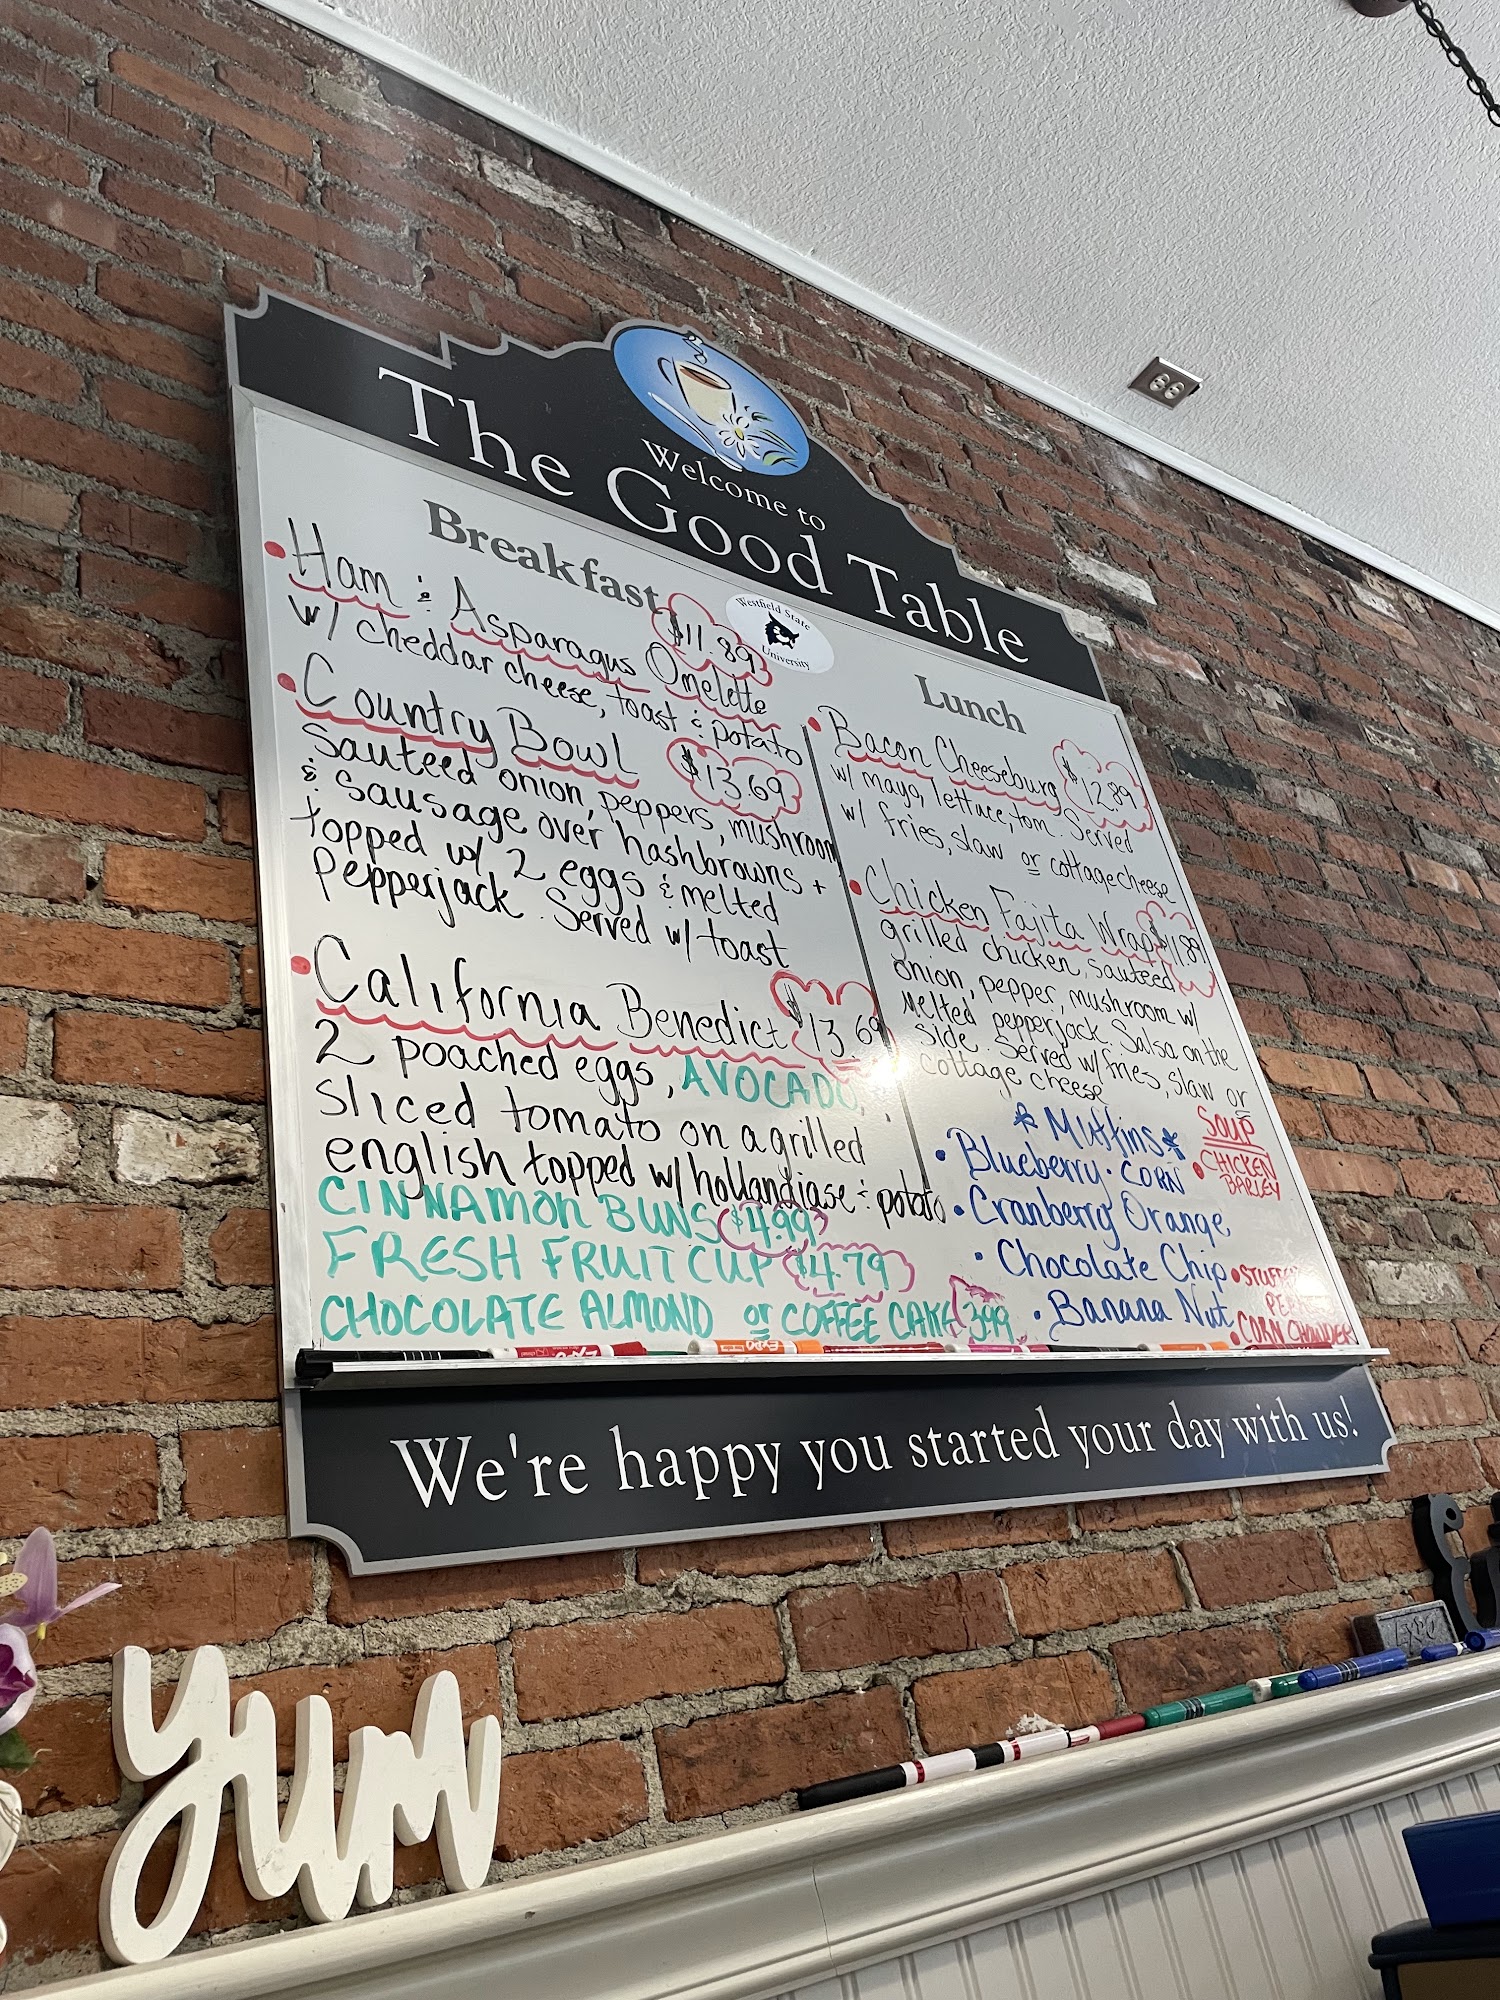 Welcome to
The Good Table
Westfield State
University
Breakfast
• Ham & Asparagus Omelette $11.89
w/ cheddar cheese, toast & potato
• Country Bowl $13.69
Sauteed onion, peppers, mushroom
& Sausage over hashbrowns +
topped w/ 2 eggs & melted
Pepperjack. Served w/ toast
• California Benedict $13.69
2 poached eggs, AVOCADO,
sliced tomato on a grilled
english topped w/ hollandiase & potato
CINNAMON BUNS $4.99
FRESH FRUIT CUP $4.79
CHOCOLATE ALMOND or COFFEE CAKE 3.99
Lunch
• Bacon Cheeseburg $12.89
w/ mayo, lettuce, tom. Served
w/ fries, slaw or cottage cheese
• Chicken Fajita Wrap $11.89
grilled chicken, sauteed
onion, pepper, mushroom w/
Melted pepperjack. Salsa on the
side. Served w/ fries, slaw or
cottage cheese
* Muffins *
• Blueberry • CORN
• Cranberry Orange
• Chocolate Chip
• Banana Nut
SOUP
• CHICKEN
BARLEY
• STUFFED
• CORN CHOWDER
EXPO
EXPO
We're happy you started your day with us!
yum